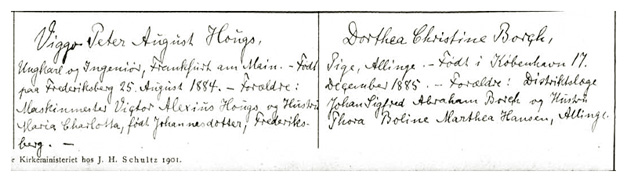 Viggo Peter August Hougs,
Ungkarl og Ingeniör, Frankfurt am Main. - Født
paa Frederiksberg 25. August 1884. - Forældre:
Maskinmester Victor Alexius Hougs og Hustru
Maria Charlotta, født Johannesdotter, Frederiks-
berg. -
Dorthea Christine Borch,
Pige, Allinge. - Født i København 17.
December 1885. - Forældre: Distriktslæge
Johan Sigfred Abraham Borch og Hustru
Thora Boline Marthea Hansen, Allinge.
r Kirkeministeriet hos J. H. Schultz 1901.